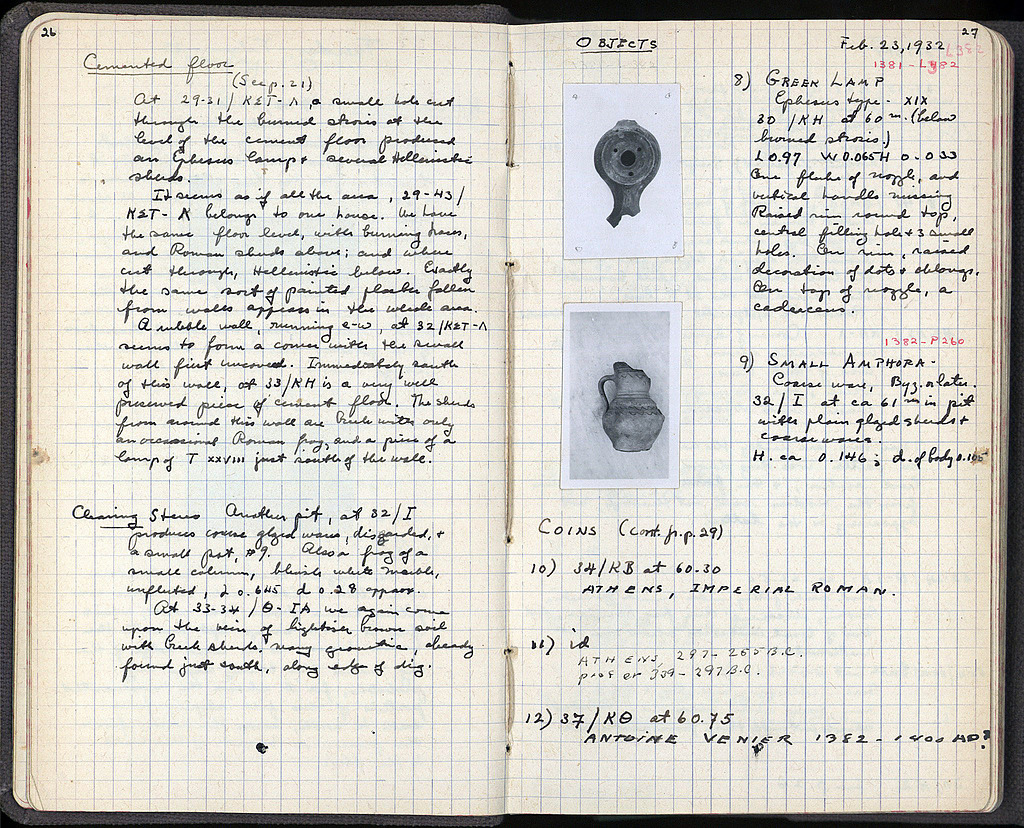 26
Cemented floor
(See p. 21)
At 29-31/ΚΣΤ-Λ, a small hole cut
through the burned strosis at the
level of the cement floor produced
an Ephesus lamp + several Hellenistic
sherds.
It seems as if all the area, 29-43/
ΚΣΤ-Λ belongs to one house. We have
the same floor level, with burning traces,
and Roman sherds above; and where
cut through, Hellenistic below. Exactly
the same sort of painted plaster fallen
from walls appears in the whole area.
A rubble wall, running e-w, at 32/ΚΣΤ-Λ
seems to form a corner with the small
wall first uncovered. Immediately south
of this wall, at 33/ΚΗ is a very well
preserved piece of cement floor. The sherds
from around this wall are Greek with only
an occasional Roman frag, and a piece of a
lamp of T XXVIII just south of the wall.
Clearing Steno Another pit, at 32/Ι
produces coarse glazed wares, disgarded, +
a small pot, #9. Also a frag of a
small column, bluish white marble,
unfluted, 0.645 d 0.28 approx.
At 33-34/Θ-ΙΑ we again come
upon the vein of lightish brown soil
with Greek sherds, many geometric, already
found just south, along edge of dig.
OBJECTS
Feb. 23, 1932
27
L382
1381-L382
8) GREEK LAMP
Ephesus type - XIX
30/ΚΗ at 60 m. (below
burned strosis.)
L 0.97 W 0.065 H 0.033
One fluke of nozzle, and
vertical handles missing
Raised rim round top,
central filling hole + 3 small
holes. On rim, raised
decoration of dots + oblongs.
On top of nozzle, a
caduceus.
1382-P260
9) SMALL AMPHORA-
Coarse ware, Byz. or later.
32/Ι at ca 61 m in pit
with plain glazed sherds +
coarse wares.
H. ca 0.146; d. of body 0.105
COINS (cont. fr. p. 29)
10) 34/ΚΒ at 60.30
ATHENS, IMPERIAL ROMAN.
11) id
ATHENS, 297-265 B.C.
prof er 339-297 B.C.
12) 37/ΚΘ at 60.75
ANTOINE VENIER 1382-1400 AD?